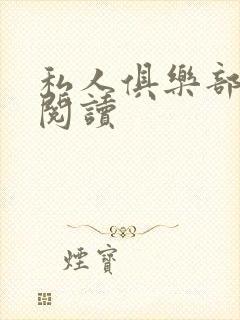 私人俱樂部
閱讀
煙寶